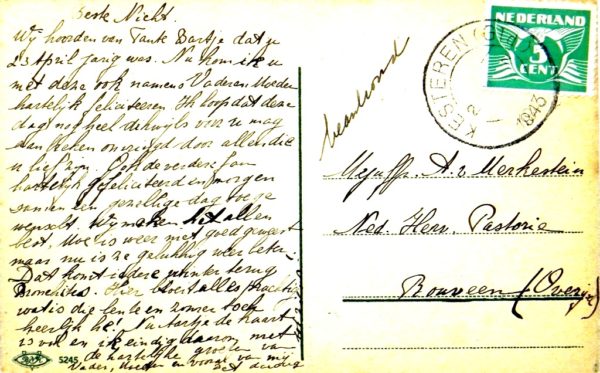 Beste Nicht.
Wij hoorden van Tante Bartje dat je
23 April jarig was. Nu kom ik u
met deze ook namens Vader en Moeder
hartelijk feliciteeren. Ik hoop dat deze
dag nog heel dikwijls voor u mag
aanbreken omringd door allen die
u lief zijn. Ook de verdere fam
hartelijk gefeliciteerd en morgen
samen een gezellige dag toege
wenscht. Wij maken het allen
best. Moe is weer niet goed geweest
maar nu is ze gelukkig weer beter.
Dat komt iedere winter terug
Bronchites. Hier bloeit alles prachtig
wat is die lente en zomer toch
heerlijk hè! Nu tantje de kaart
is vol en ik eindig daarom met
de hartelijke groeten van
Vader, Moeder en vooral van mij
beantwoord
NEDERLAND
5
CENT
KESTEREN
1943
Mejuffr. A. v. Merkestein
Ned. Herv. Pastorie
Rouveen (Overijs)
5245